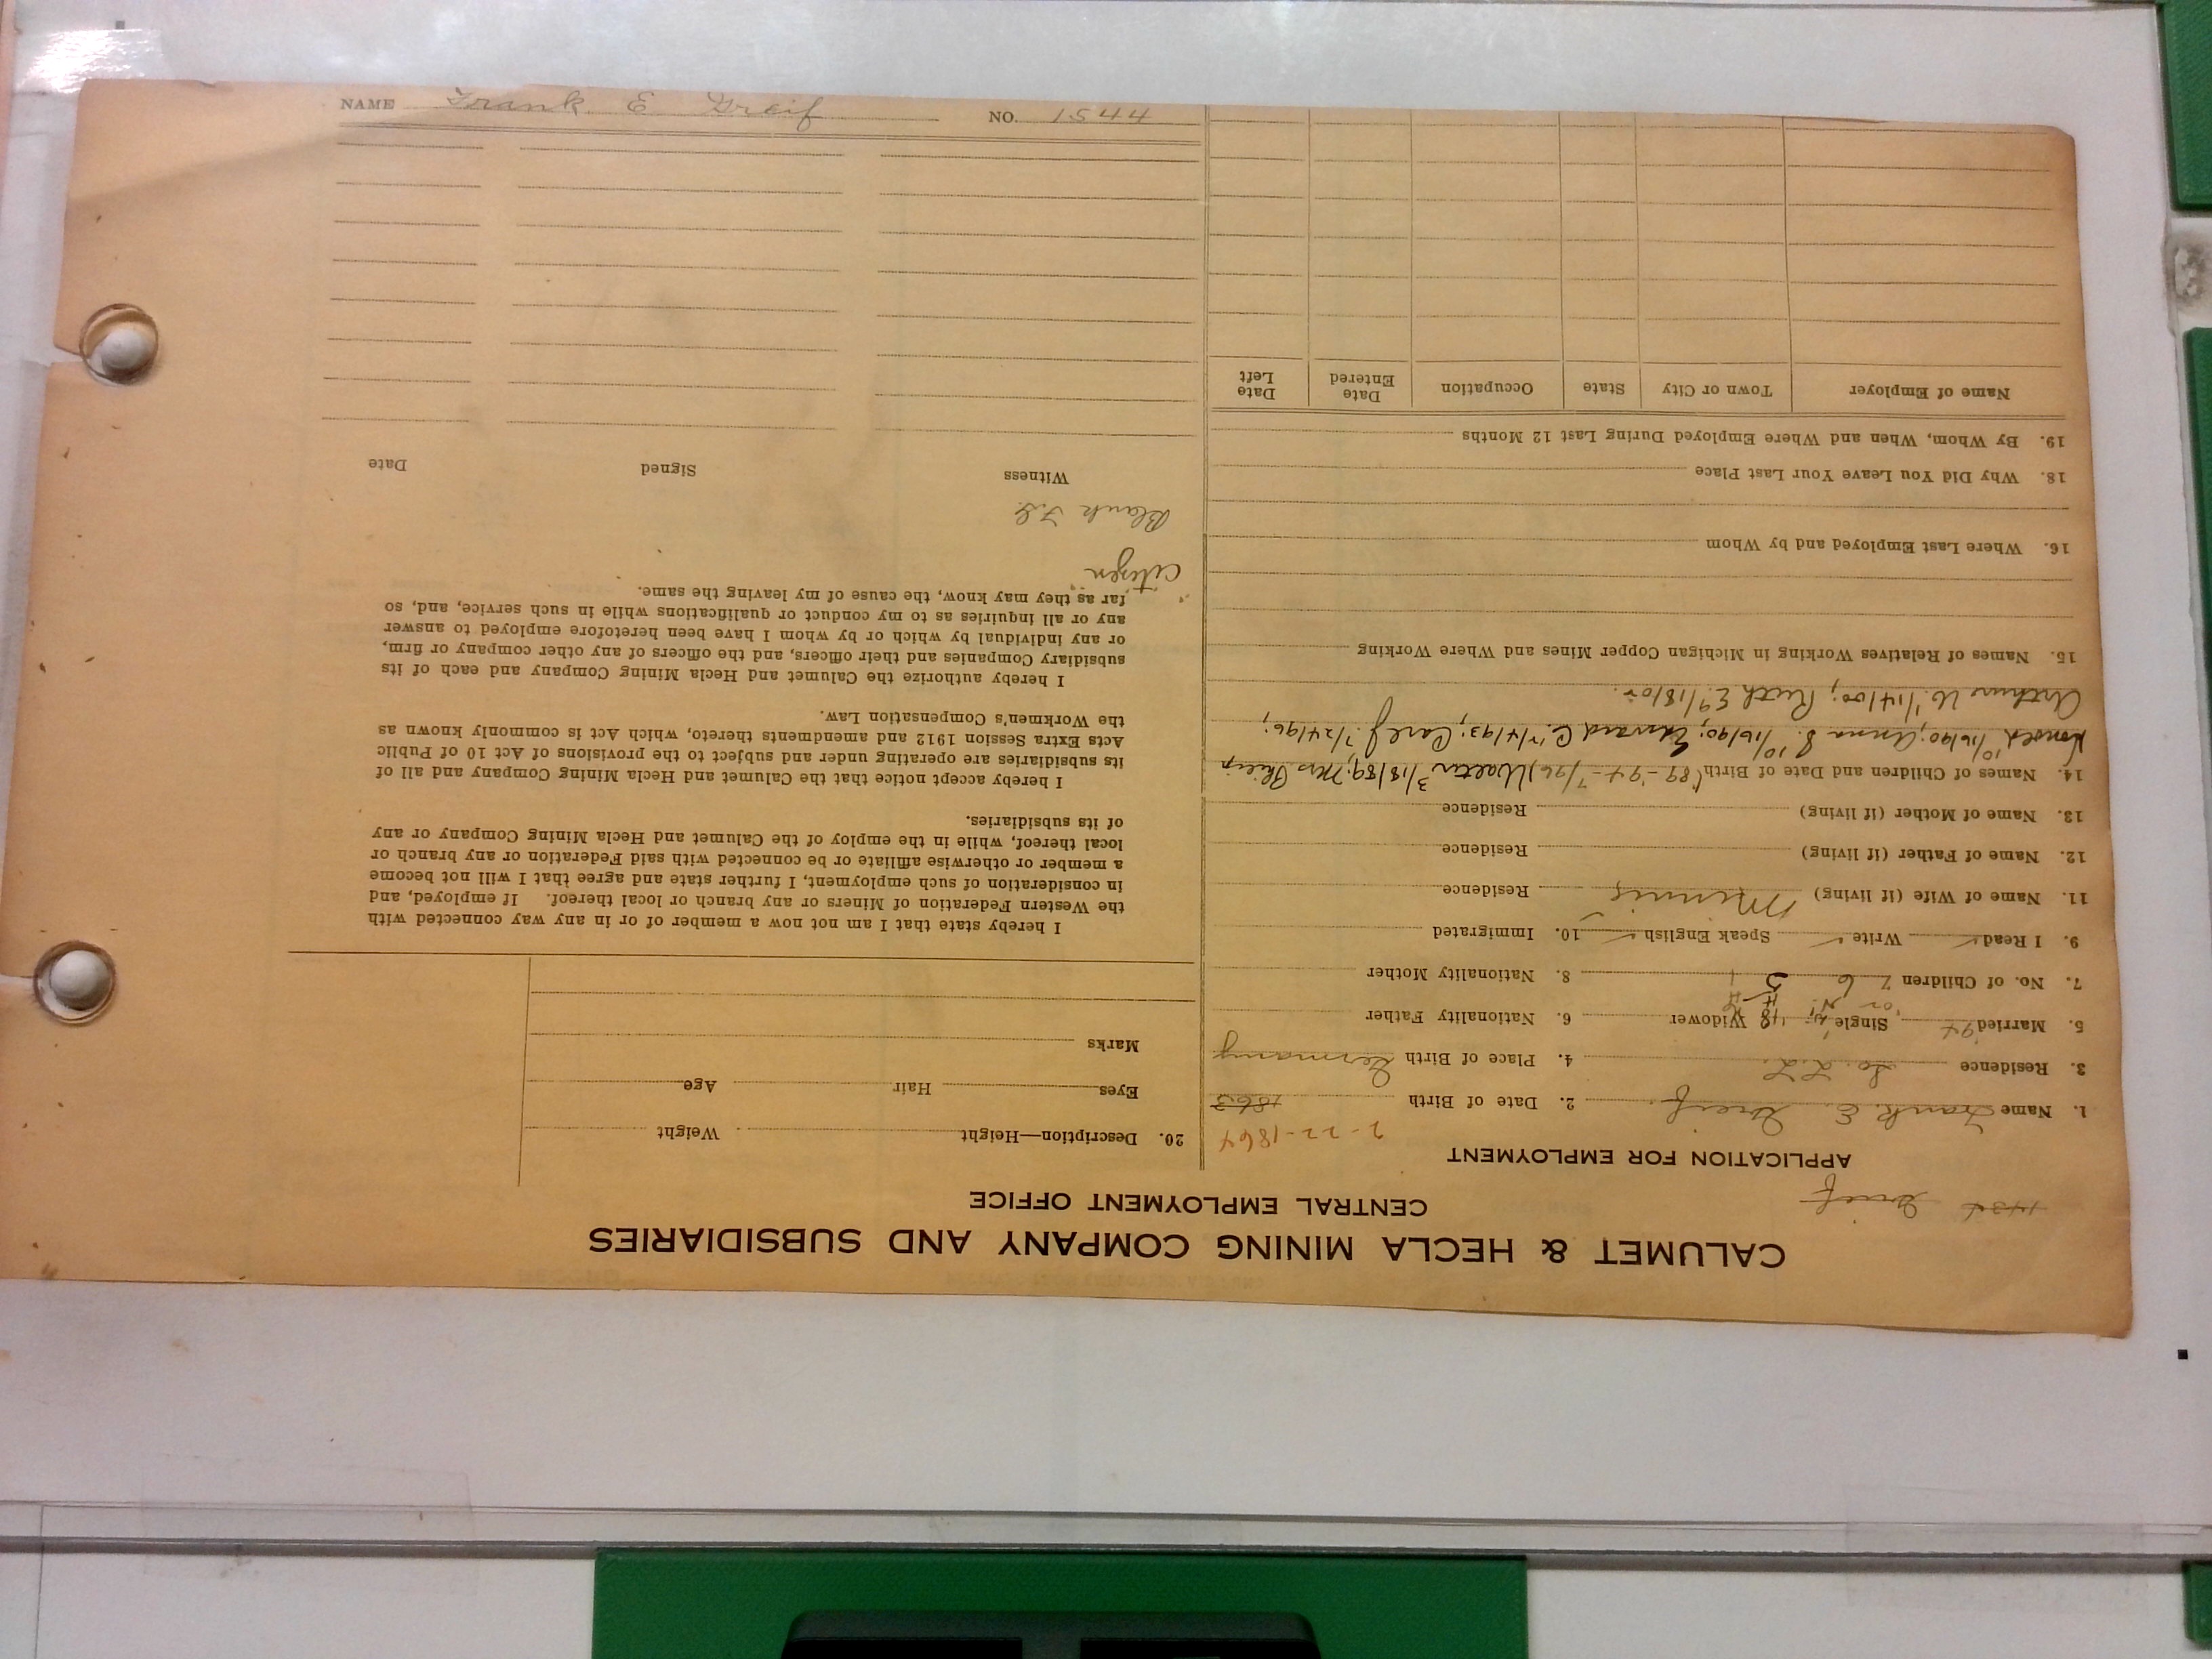 CALUMET & HECLA MINING COMPANY AND SUBSIDIARIES
CENTRAL EMPLOYMENT OFFICE
1434 Greif
APPLICATION FOR EMPLOYMENT
2-22-1864
1. Name Frank E. Greif 2. Date of Birth 1863
3. Residence So. L.L. 4. Place of Birth Germany
5. Married '94 or Single Widower 6. Nationality Father
7. No. of Children 7 6 5 8. Nationality Mother
9. I Read ✓ Write ✓ Speak English ✓ 10. Immigrated
11. Name of Wife (if living) Minnie Residence
12. Name of Father (if living) Residence
13. Name of Mother (if living) Residence
14. Names of Children and Date of Birth ('89-'94-7/96) Walter 3/18/89; Mrs
10/16/90; Anna S. 10/16/90; Edward C. 4/93; Carl J. 7/24/96;
Arthur W. 1/14/00; Ruth E. 9/18/02.
15. Names of Relatives Working in Michigan Copper Mines and Where Working
16. Where Last Employed and by Whom
18. Why Did You Leave Your Last Place
19. By Whom, When and Where Employed During Last 12 Months
Name of Employer Town or City State Occupation Date Entered Date Left
20. Description—Height Weight
Eyes Hair Age
Marks
I hereby state that I am not now a member of or in any way connected with
the Western Federation of Miners or any branch or local thereof. If employed, and
in consideration of such employment, I further state and agree that I will not become
a member or otherwise affiliate or be connected with said Federation or any branch or
local thereof, while in the employ of the Calumet and Hecla Mining Company or any
of its subsidiaries.
I hereby accept notice that the Calumet and Hecla Mining Company and all of
its subsidiaries are operating under and subject to the provisions of Act 10 of Public
Acts Extra Session 1912 and amendments thereto, which Act is commonly known as
the Workmen's Compensation Law.
I hereby authorize the Calumet and Hecla Mining Company and each of its
subsidiary Companies and their officers, and the officers of any other company or firm,
or any individual by which or by whom I have been heretofore employed to answer
any or all inquiries as to my conduct or qualifications while in such service, and, so
far as they may know, the cause of my leaving the same.
Citizen
Blank F.G.
Witness Signed Date
NAME Frank E Greif NO. 1544